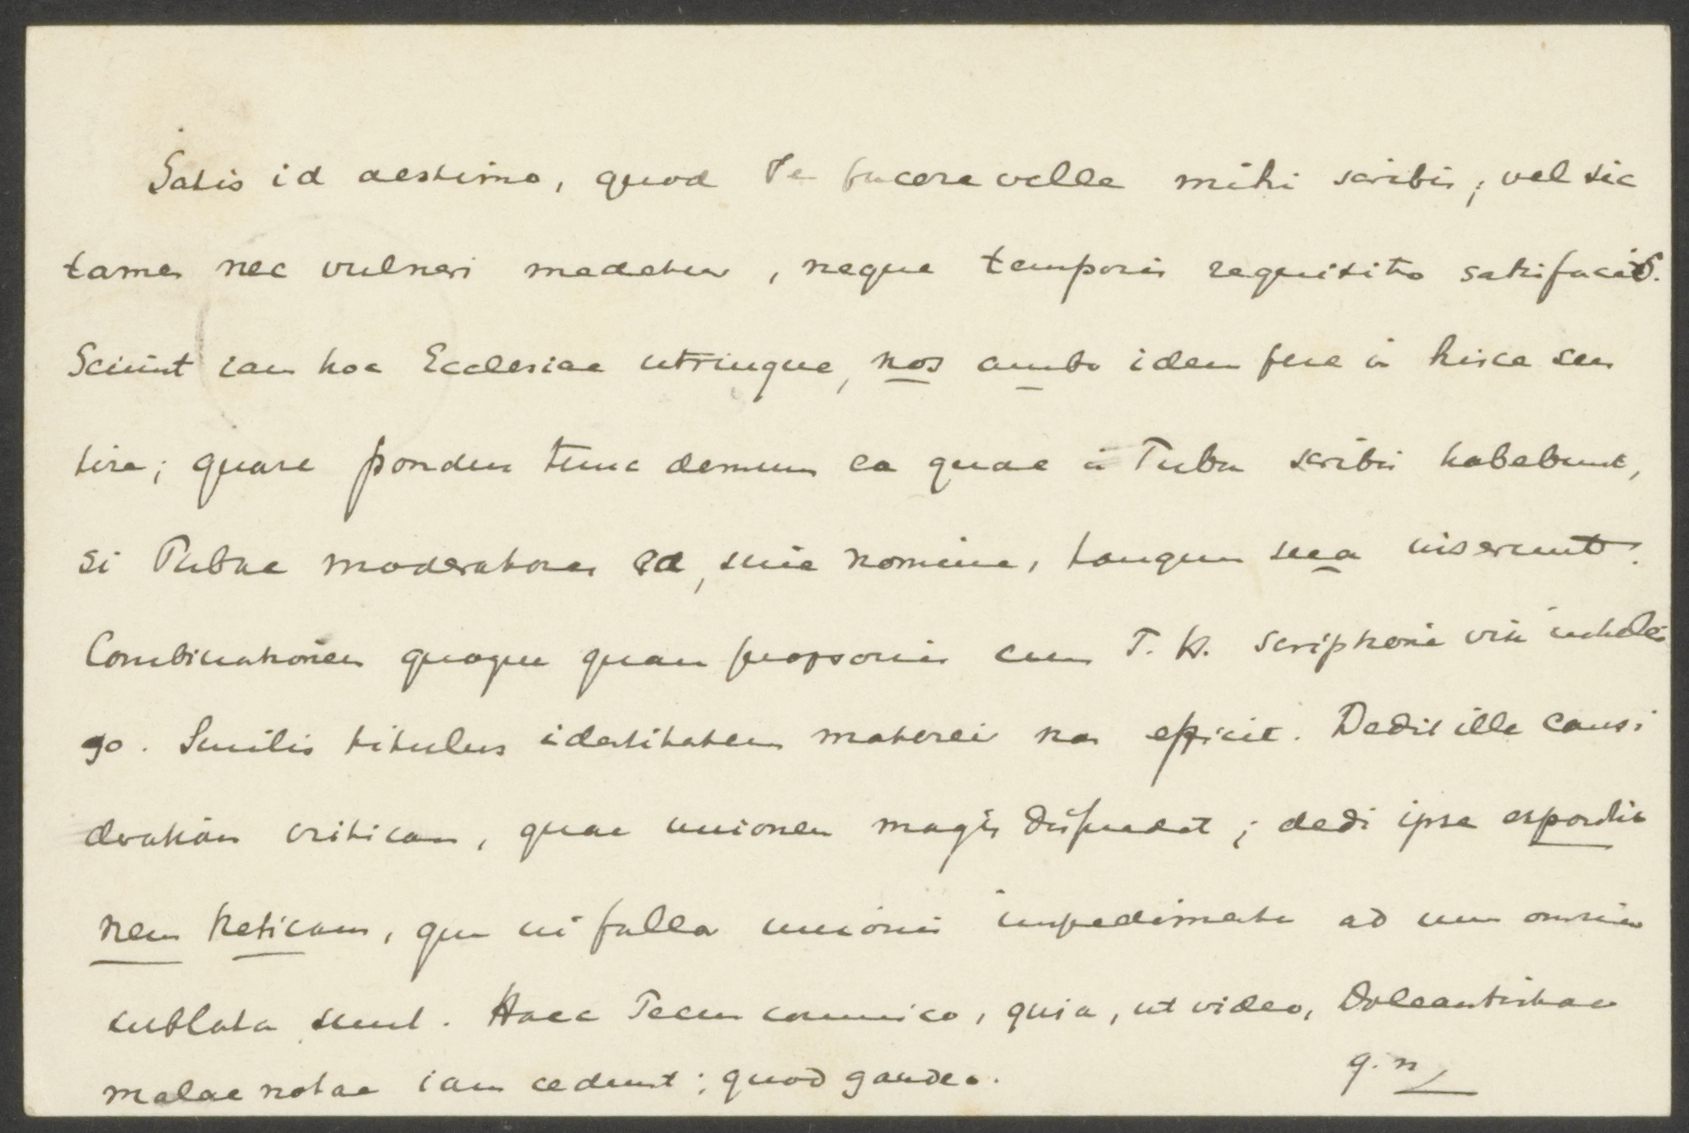 Satis id aestimo, quod Te facere velle mihi scribis; vel sic
tamen nec vulneri medetur, neque temporis requisito satisfacis.
Sciunt iam hoc Ecclesiae utrinque, nos ambo idem fere in hisce sen
tire; quare pondus tunc demum ea quae in Tuba scribis habebunt,
si Tubae moderatores ea, sine nomine, tanquam sua inserunt.
Combinationem quoque quam proponis cum T. K. scriptione vix intelli
go. Similis titulus identitatem materiei non efficit. Dedit ille consi
derationem criticam, quae unionem magis; dedi ipse expositio
nem theticam, qua ni fallor unionis impedimenta ad unum omnia
sublata sunt. Haec Tecum communico, quia, ut video, Doleantistae
malae notae iam cedunt; quod gaudeo.